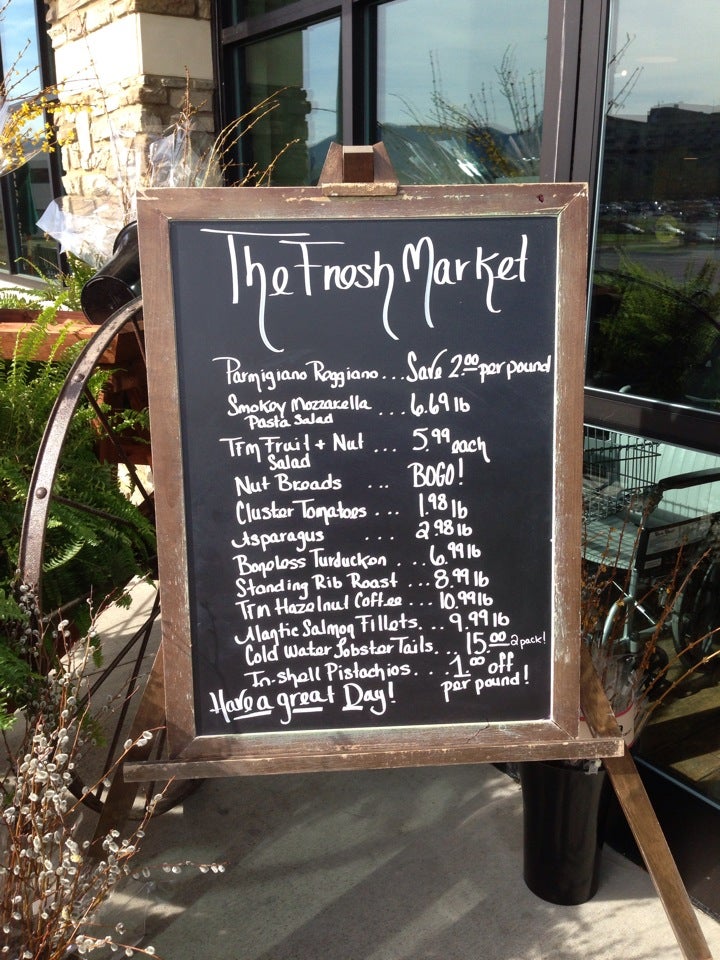 The Fresh Market
Parmigiano Reggiano ... Save 2.00 per pound
Smokey Mozzarella ... 6.69 lb
Pasta Salad
TFM Fruit + Nut ... 5.99 each
Salad
Nut Breads ... BOGO!
Cluster Tomatoes ... 1.98 lb
Asparagus ... 2.98 lb
Boneless Turducken .... 6.99 lb
Standing Rib Roast ... 8.99 lb
TFM Hazelnut Coffee ... 10.99 lb
Atlantic Salmon Fillets... 9.99 lb
Cold Water Lobster Tails... 15.00 2 pack!
In-shell Pistachios .... 1.00 off
per pound!
Have a great Day!